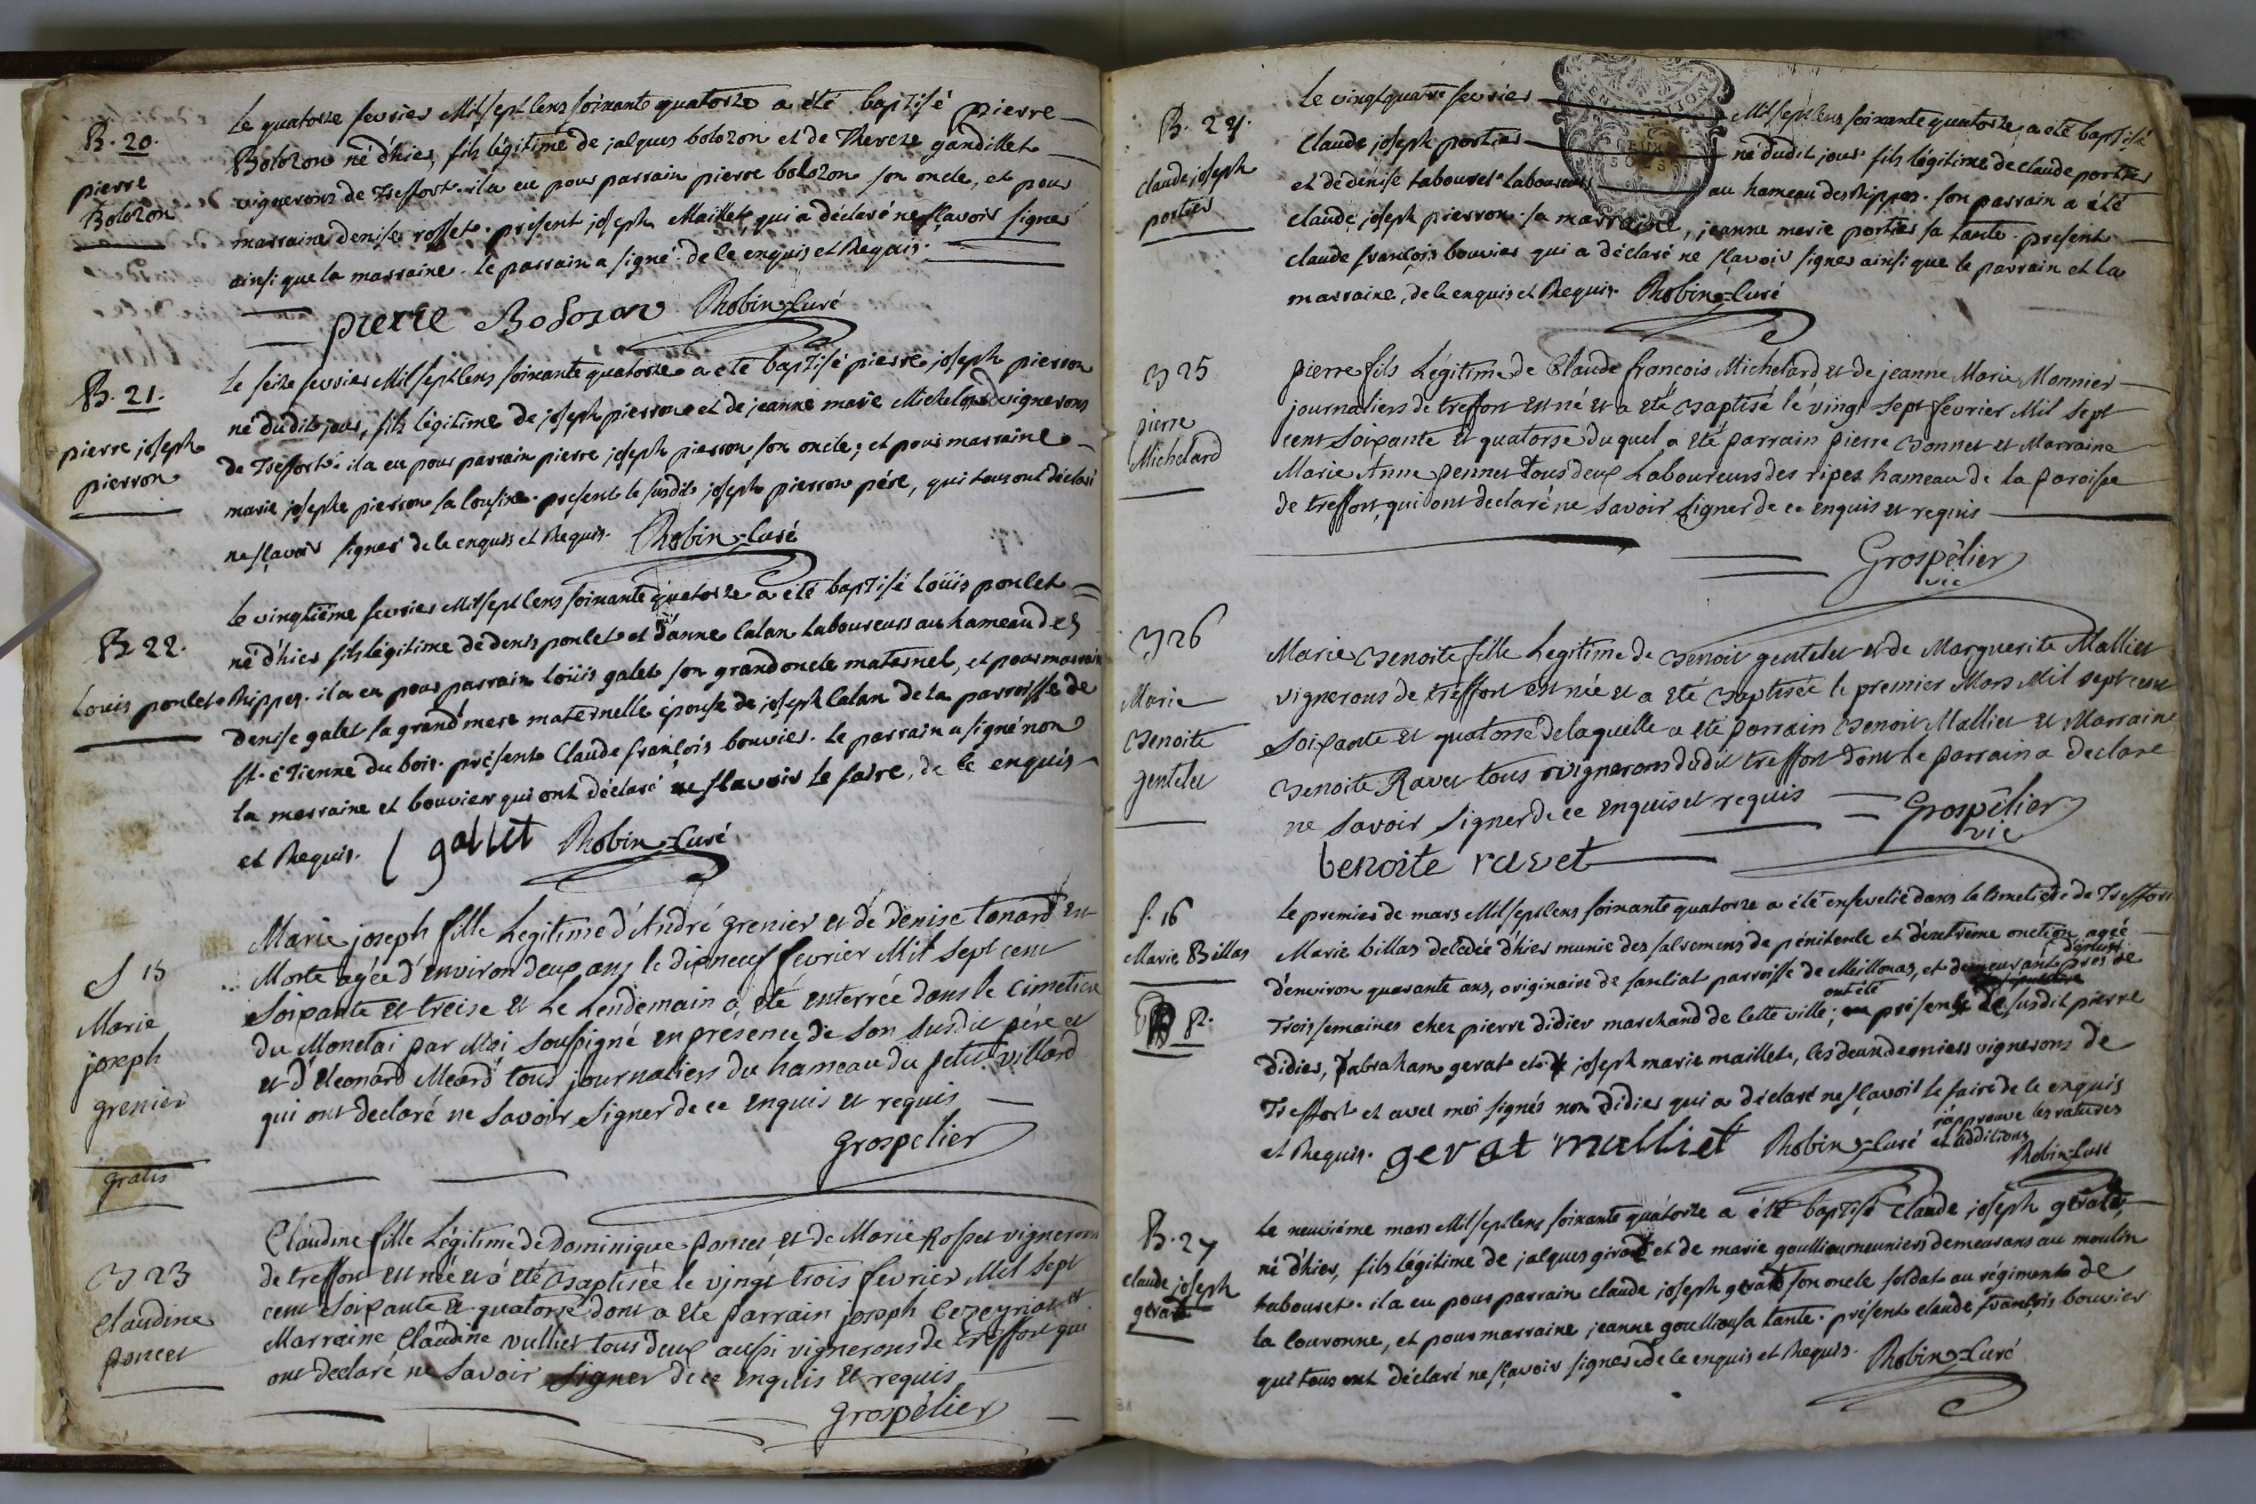 B. 20.
pierre
Bolozon
Le quatorze fevrier Mil sept Cens soixante quatorze a été baptisé pierre
Bolozon né d'hier, fils légitime de jacques bolozon et de Thereze gandillet
vignerons de Treffort. il a eu pour parrain pierre bolozon son oncle, et pour
marraine denise rosset. present joseph Maillet qui a déclaré ne sçavoir signer
ainsi que la marraine. Le parrain a signé. de ce enquis et Requis.
pierre Bolozon Robin Curé
B. 21.
pierre joseph
pierron
Le seize fevrier Mil sept Cens soixante quatorze a été baptisé pierre joseph pierron
né dudit jour, fils légitime de joseph pierron et de jeanne marie Michelard vignerons
de Treffort. il a eu pour parrain pierre joseph pierron son oncle; et pour marraine
marie josephe pierron sa Cousine. present le susdit joseph pierron pére, qui tous ont déclaré
ne sçavoir signer de ce enquis et Requis. Robin Curé
B 22.
Louis poncet
Le vingtiëme fevrier Mil sept Cens soixante quatorze a été baptisé Loüis poncet
né d'hier fils légitime de denis poncet et d'anne Calan Laboureurs au hameau des
Rippes. il a eu pour parrain Loüis galet son grand oncle maternel, et pour marraine
Denise galet sa grand'mere maternelle épouse de joseph Calan de la parroisse de
st. étienne du bois. présent Claude françois bouvier. Le parrain a signé non
la marraine et bouvier qui ont déclaré ne sçavoir le faire, de ce enquis
et Requis. L gallet Robin Curé
S 15
Marie
joseph
grenier
gratis
Marie joseph fille Legitime d'André grenier et de Denise tonard est
Morte agée d'environ deux ans le dixneuf fevrier Mil sept cent
soixante et treise et Le Lendemain a été enterrée dans le Cimetiere
du Monetai par Moi soussigné en presence de son susdit pére et
et d'Eleonard Méard tous journaliers du hameau du petit villard
qui ont declaré ne savoir signer de ce enquis et requis
Grospelier
B 23
Claudine
poncet
Claudine fille Légitime de Dominique poncet et de Marie Rosset vignerons
de treffort est née et a été Baptisée le vingt trois fevrier Mil sept
cent soixante et quatorse dont a ete parrain joseph Cezeyriat et
Marraine Claudine vullier tous deux aussi vignerons de treffort qui
ont declaré ne savoir signer de ce enquis et requis
Grospélier
B. 24.
claude joseph
portier
Le vingt quatre fevrier Mil sept Cens soixante quatorze a été baptisé
Claude joseph portier né dudit jour fils légitime de claude portier
et de denise tabouret Laboureurs au hameau des Rippes. son parrain a été
Claude joseph pierron. sa marraine, jeanne marie portier sa tante. présent
claude françois bouvier qui a déclaré ne sçavoir signer ainsi que le parrain et la
marraine, de ce enquis et Requis. Robin Curé
B 25
pierre
Michelard
pierre fils Légitime de Claude francois Michelard et de jeanne Marie Monnier
journaliers de treffort est né et a été Baptisé le vingt sept fevrier Mil sept
cent soixante et quatorse du quel a été parrain pierre Bonnet et Marraine
Marie Anne pennet tous deux Laboureurs des ripes hameau de la paroisse
de treffort, qui ont declaré ne savoir signer de ce enquis et requis
Grospélier
vic
B 26
Marie
Benoite
gentelet
Marie Benoite fille Legitime de Benoit gentelet et de Marguerite Malliet
vignerons de treffort est née et a été Baptisée le premier Mars Mil sept cent
soixante et quatorse de laquelle a été parrain Benoit Malliet et Marraine
Benoite Ravet tous vignerons dudit treffort dont le parrain a declaré
ne savoir signer de ce enquis et requis Grospélier
vic
benoite ravet
S. 16
Marie Billas
R.
Le premier de mars Mil sept Cens soixante quatorze a été ensevelie dans le Cimetiere de Treffort
Marie billas decedée d'hier munie des sacremens de pénitence et d'extrême onction agée
d'environ quarante ans, originaire de sanciat parroisse de Meillonas, et demeurant depuis près de
Trois semaines chez pierre didier marchand de Cette ville; ont été présents le susdit pierre
Didier, d'abraham gerat et de joseph marie maillet, les deux derniers vignerons de
Treffort et avec moi signés non didier qui a déclaré ne sçavoir le faire de ce enquis
et Requis. gerat malliet Robin Curé j'approuve les ratures
et additions
Robin Curé
B. 27
claude joseph
gerat
Le neuviéme mars Mil sept Cens soixante quatorze a été baptisé Claude joseph gerat
né d'hier, fils légitime de jacques girod et de marie goullion meuniers demeurans au moulin
tabouret. il a eu pour parrain claude joseph gerat son oncle soldat au régiment de
la Couronne, et pour marraine jeanne goullion sa tante. présent claude françois bouvier
qui tous ont déclaré ne sçavoir signer de ce enquis et Requis. Robin Curé